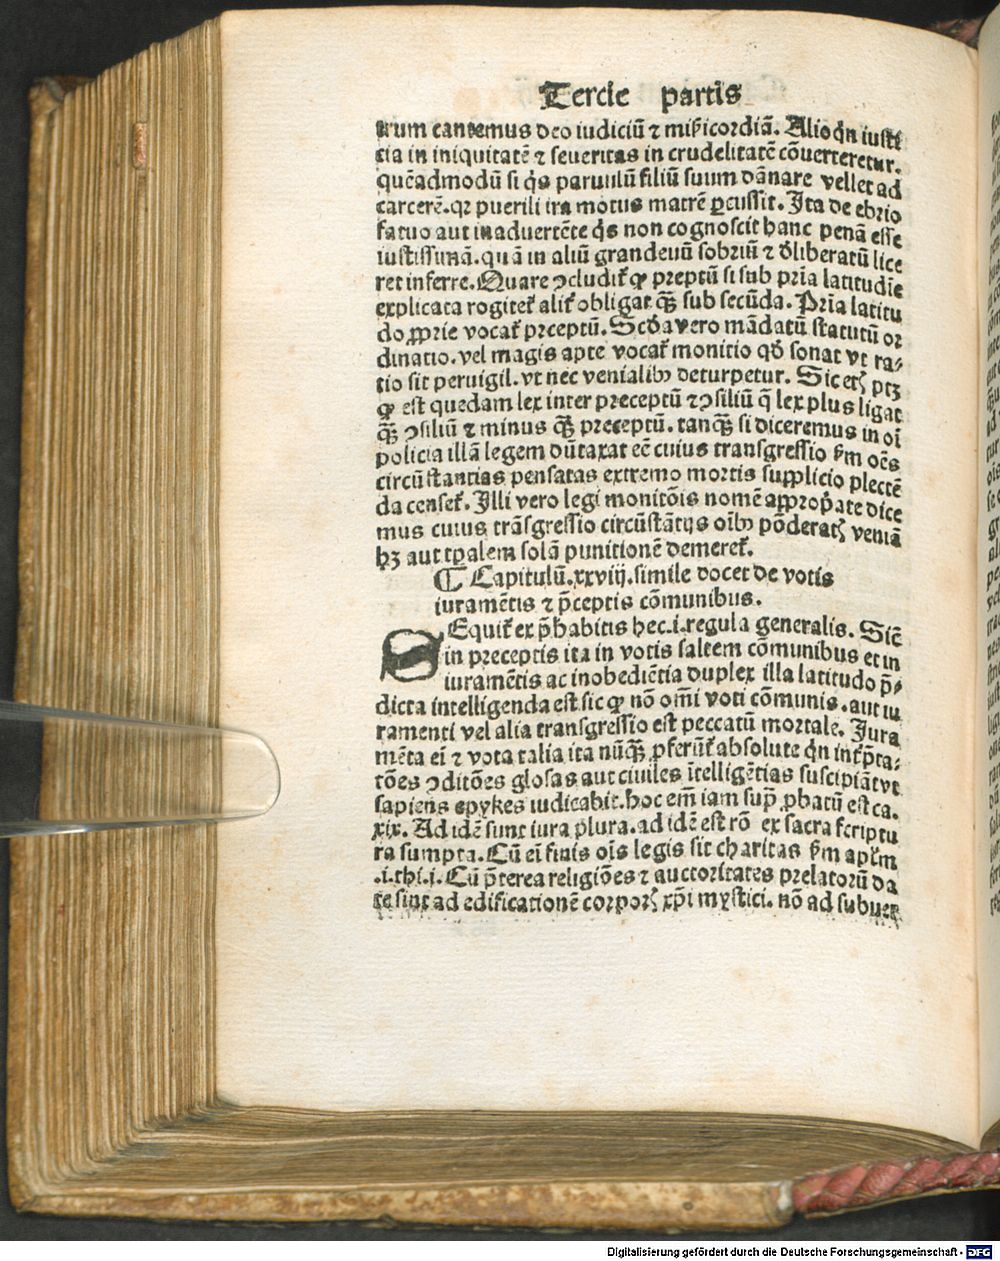 Tercie partis
trum cantemus deo iudiciū ⁊ mīẜicordiā. Alioq̄n iusti
cia in iniquitatē ⁊ seueritas in crudelitatē cōuerteretur.
quēadmodū si q̇s paruulū filiū suum dānare vellet ad
carcerē. qꝛ puerili ira motus matrē ꝑcussit. Ita de ebrio
fatuo aut inaduertēte q̇s non cognoscit hanc penā esse
iustissimā. quā in aliū grandeuū sobriū ⁊ dliberatū lice
ret inferre. Quare ↄcludit̉ ꝙ preptū si sub pria latitudīe
explicata rogitet̉ alit̉ obligat qȝ̄ sub secūda. Pria latitu
do ꝓprie vocat̉ prceptū. Scd̓a vero mādatū statutū or
dinatio. vel magis apte vocat̉ monitio qd̓ sonat vt ra⸗
tio sit peruigil. vt nec venialibꝰ deturpetur. Sic etꝭ ptꝫ
ꝙ est quedam lex inter preceptū ⁊ ↄsiliū q̄ lex plus ligat
qȝ̄ ↄsiliū ⁊ minus qȝ̄ preceptū. tanqȝ̄ si diceremus in oī
policia illā legem dūtaxat eē cuius transgressio ẜm oēs
circūstantias pensatas extremo mortis supplicio plectē
da censet̉. Illi vero legi monitōis nomē appropate dice
mus cuius trāsgressio circūstātijs oībꝰ pōderatꝭ veniā
hꝫ aut tpalem solā punitionē demeret̉.
¶ Capitulū. xxviij. simile docet de votis
iuramētis ⁊ p̄ceptis cōmunibus.
SEquit̉ ex p̄habitis hec. i. regula generalis. Sicē
in preceptis ita in votis saltem cōmunibus et in
iuramētis ac inobediētia duplex illa latitudo p̄⸗
dicta intelligenda est sic ꝙ nō om̄i voti cōmunis. aut iu
ramenti vel alia transgressio est peccatū mortale. Jura
mēta eī ⁊ vota talia ita nūqȝ̄ ꝓferūt̉ absolute qn̄ int̉p̄ta⸗
tōes ↄditōes glosas aut ciuiles ītelligētias suscipiāt vt
sapiens epykes iudicabit. hoc em̄ iam sup̄ ꝓbatū est ca.
xix. Ad idē sunt iura plura. ad idē est rō ex sacra scriptu
ra sumpta. Cū eī finis oīs legis sit charitas ẜm apl̄m
.i. thi. i. Cū p̄terea religiōes ⁊ auctoritates prelatorū da
te sint ad edificationē corporꝭ xp̄i mystici. nō ad subuer
Digitalisierung gefördert durch die Deutsche Forschungsgemeinschaft - DFG